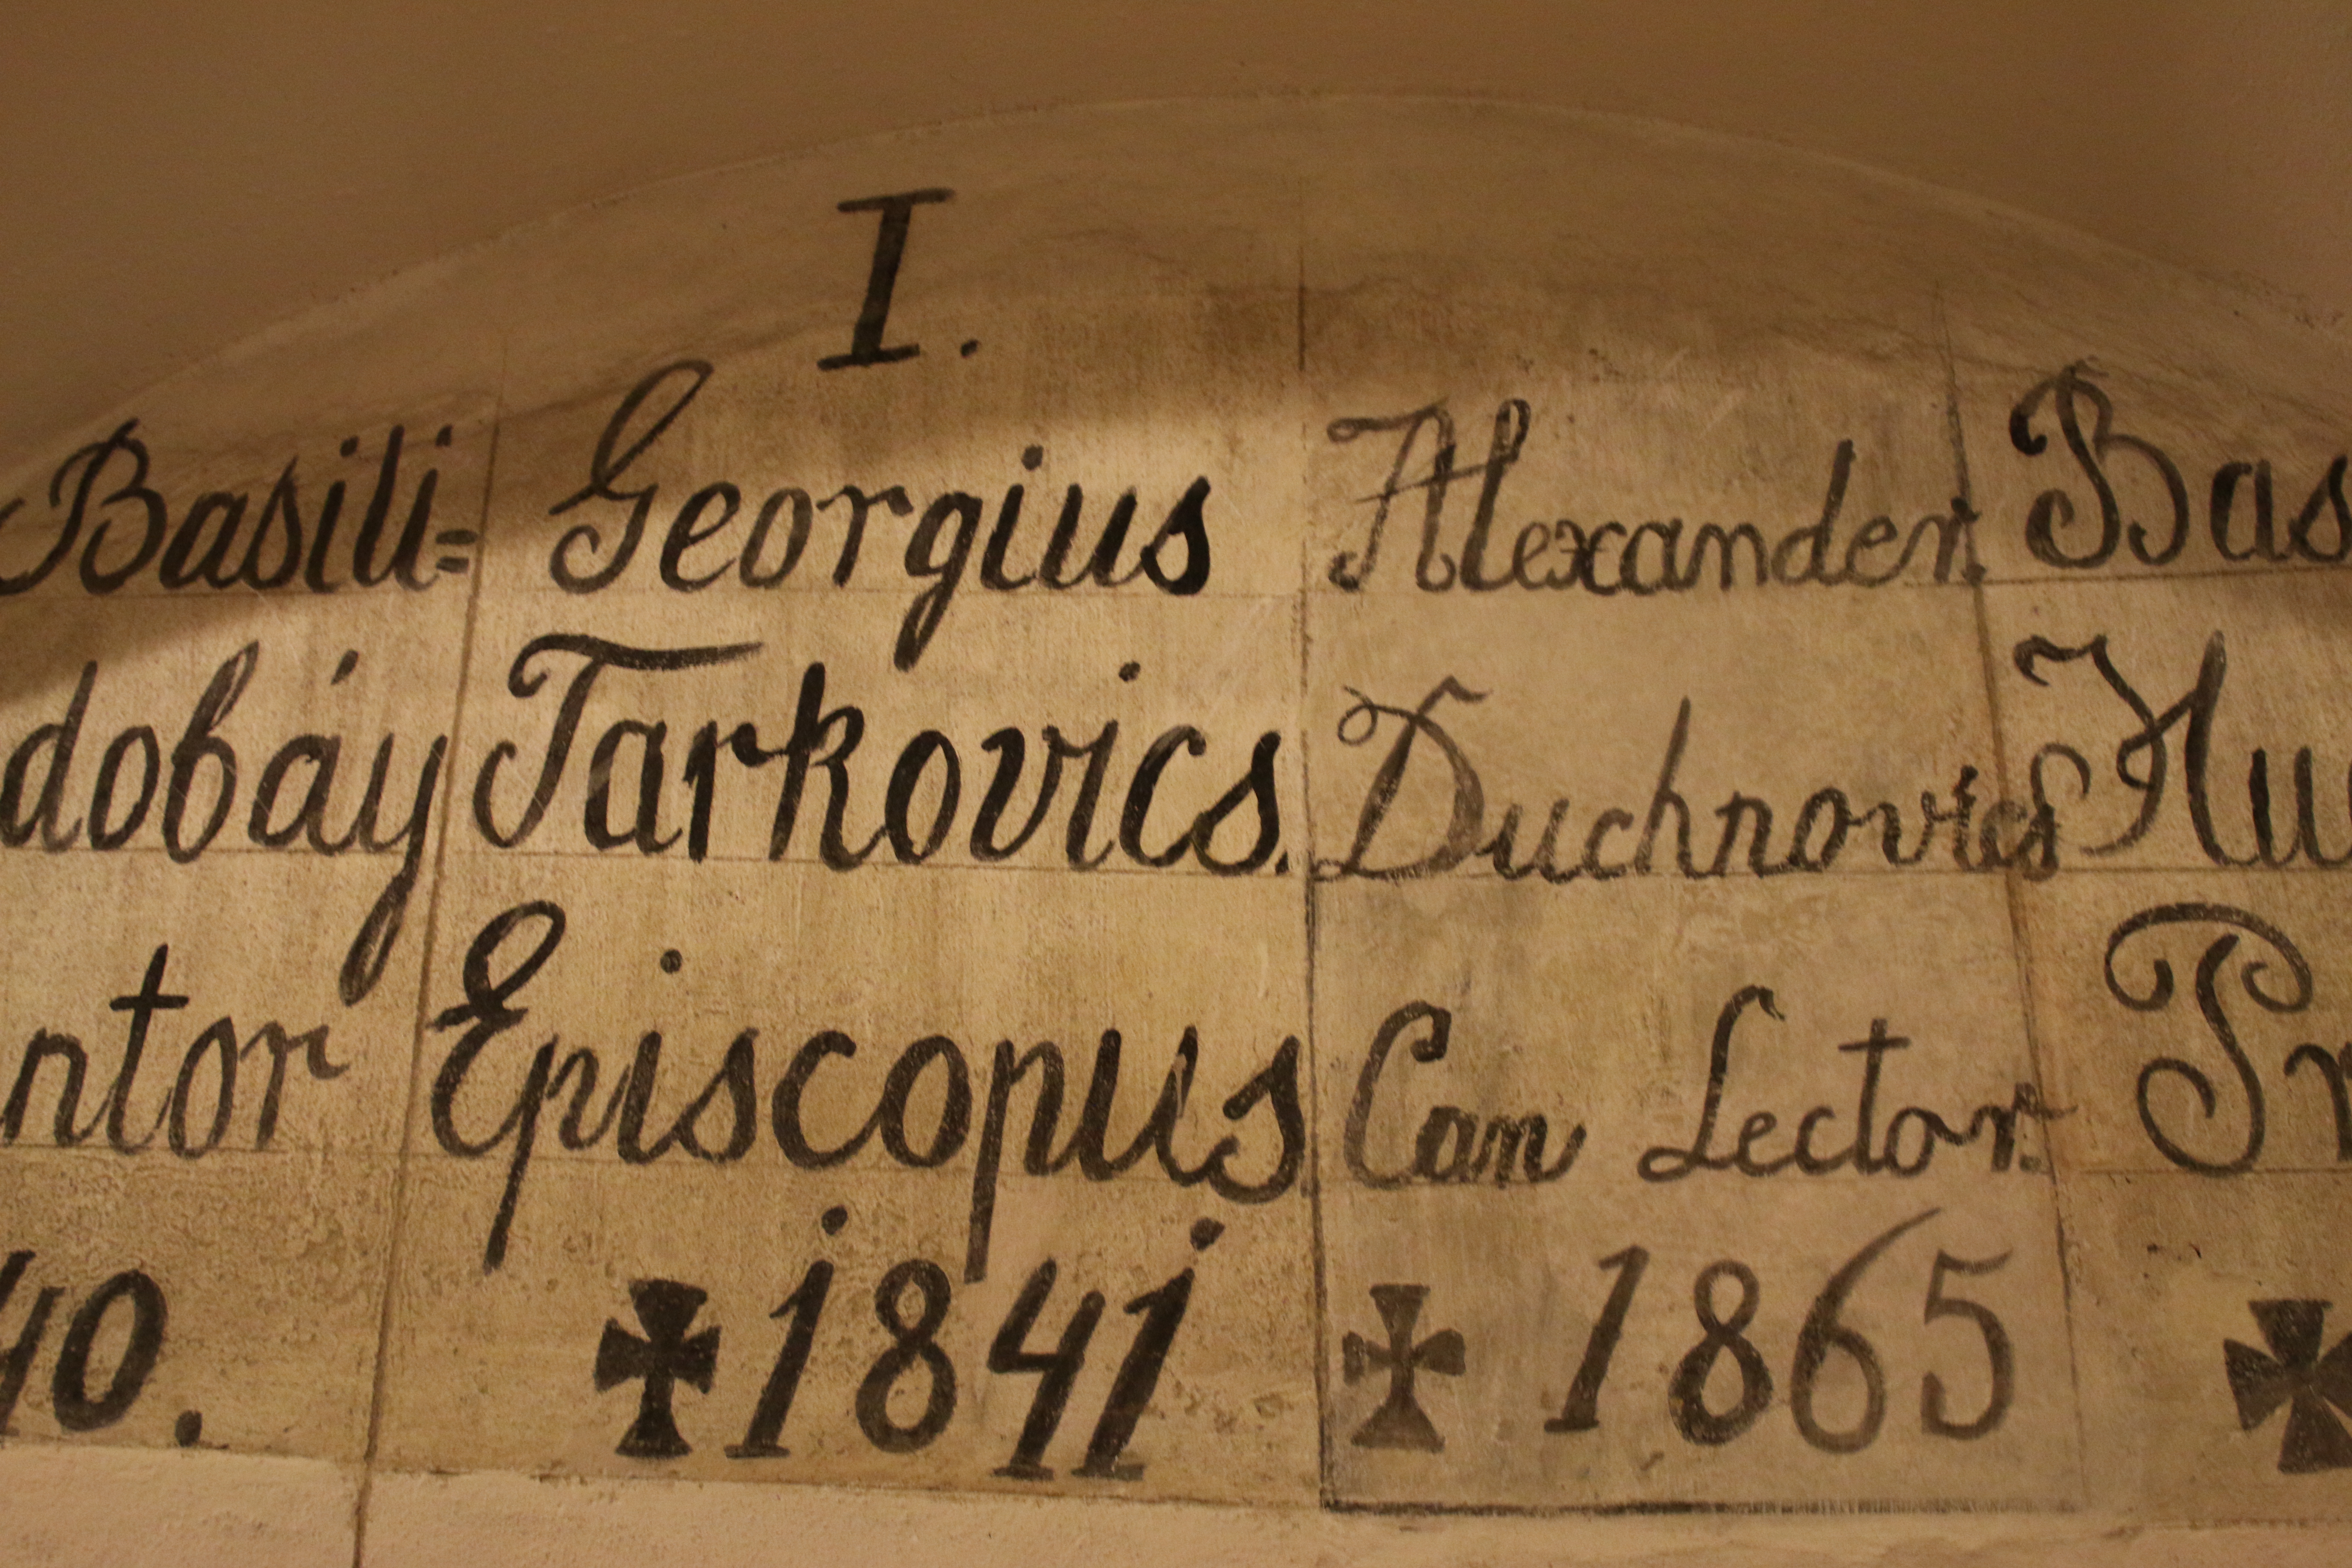 I.
Basili=
dobáy
ntor
40.
Georgius
Tarkovics.
Episcopus.
✠ 1841
Alexander.
Duchnovics
Can Lector.
✠ 1865
Bas
Hu
Pr
✠